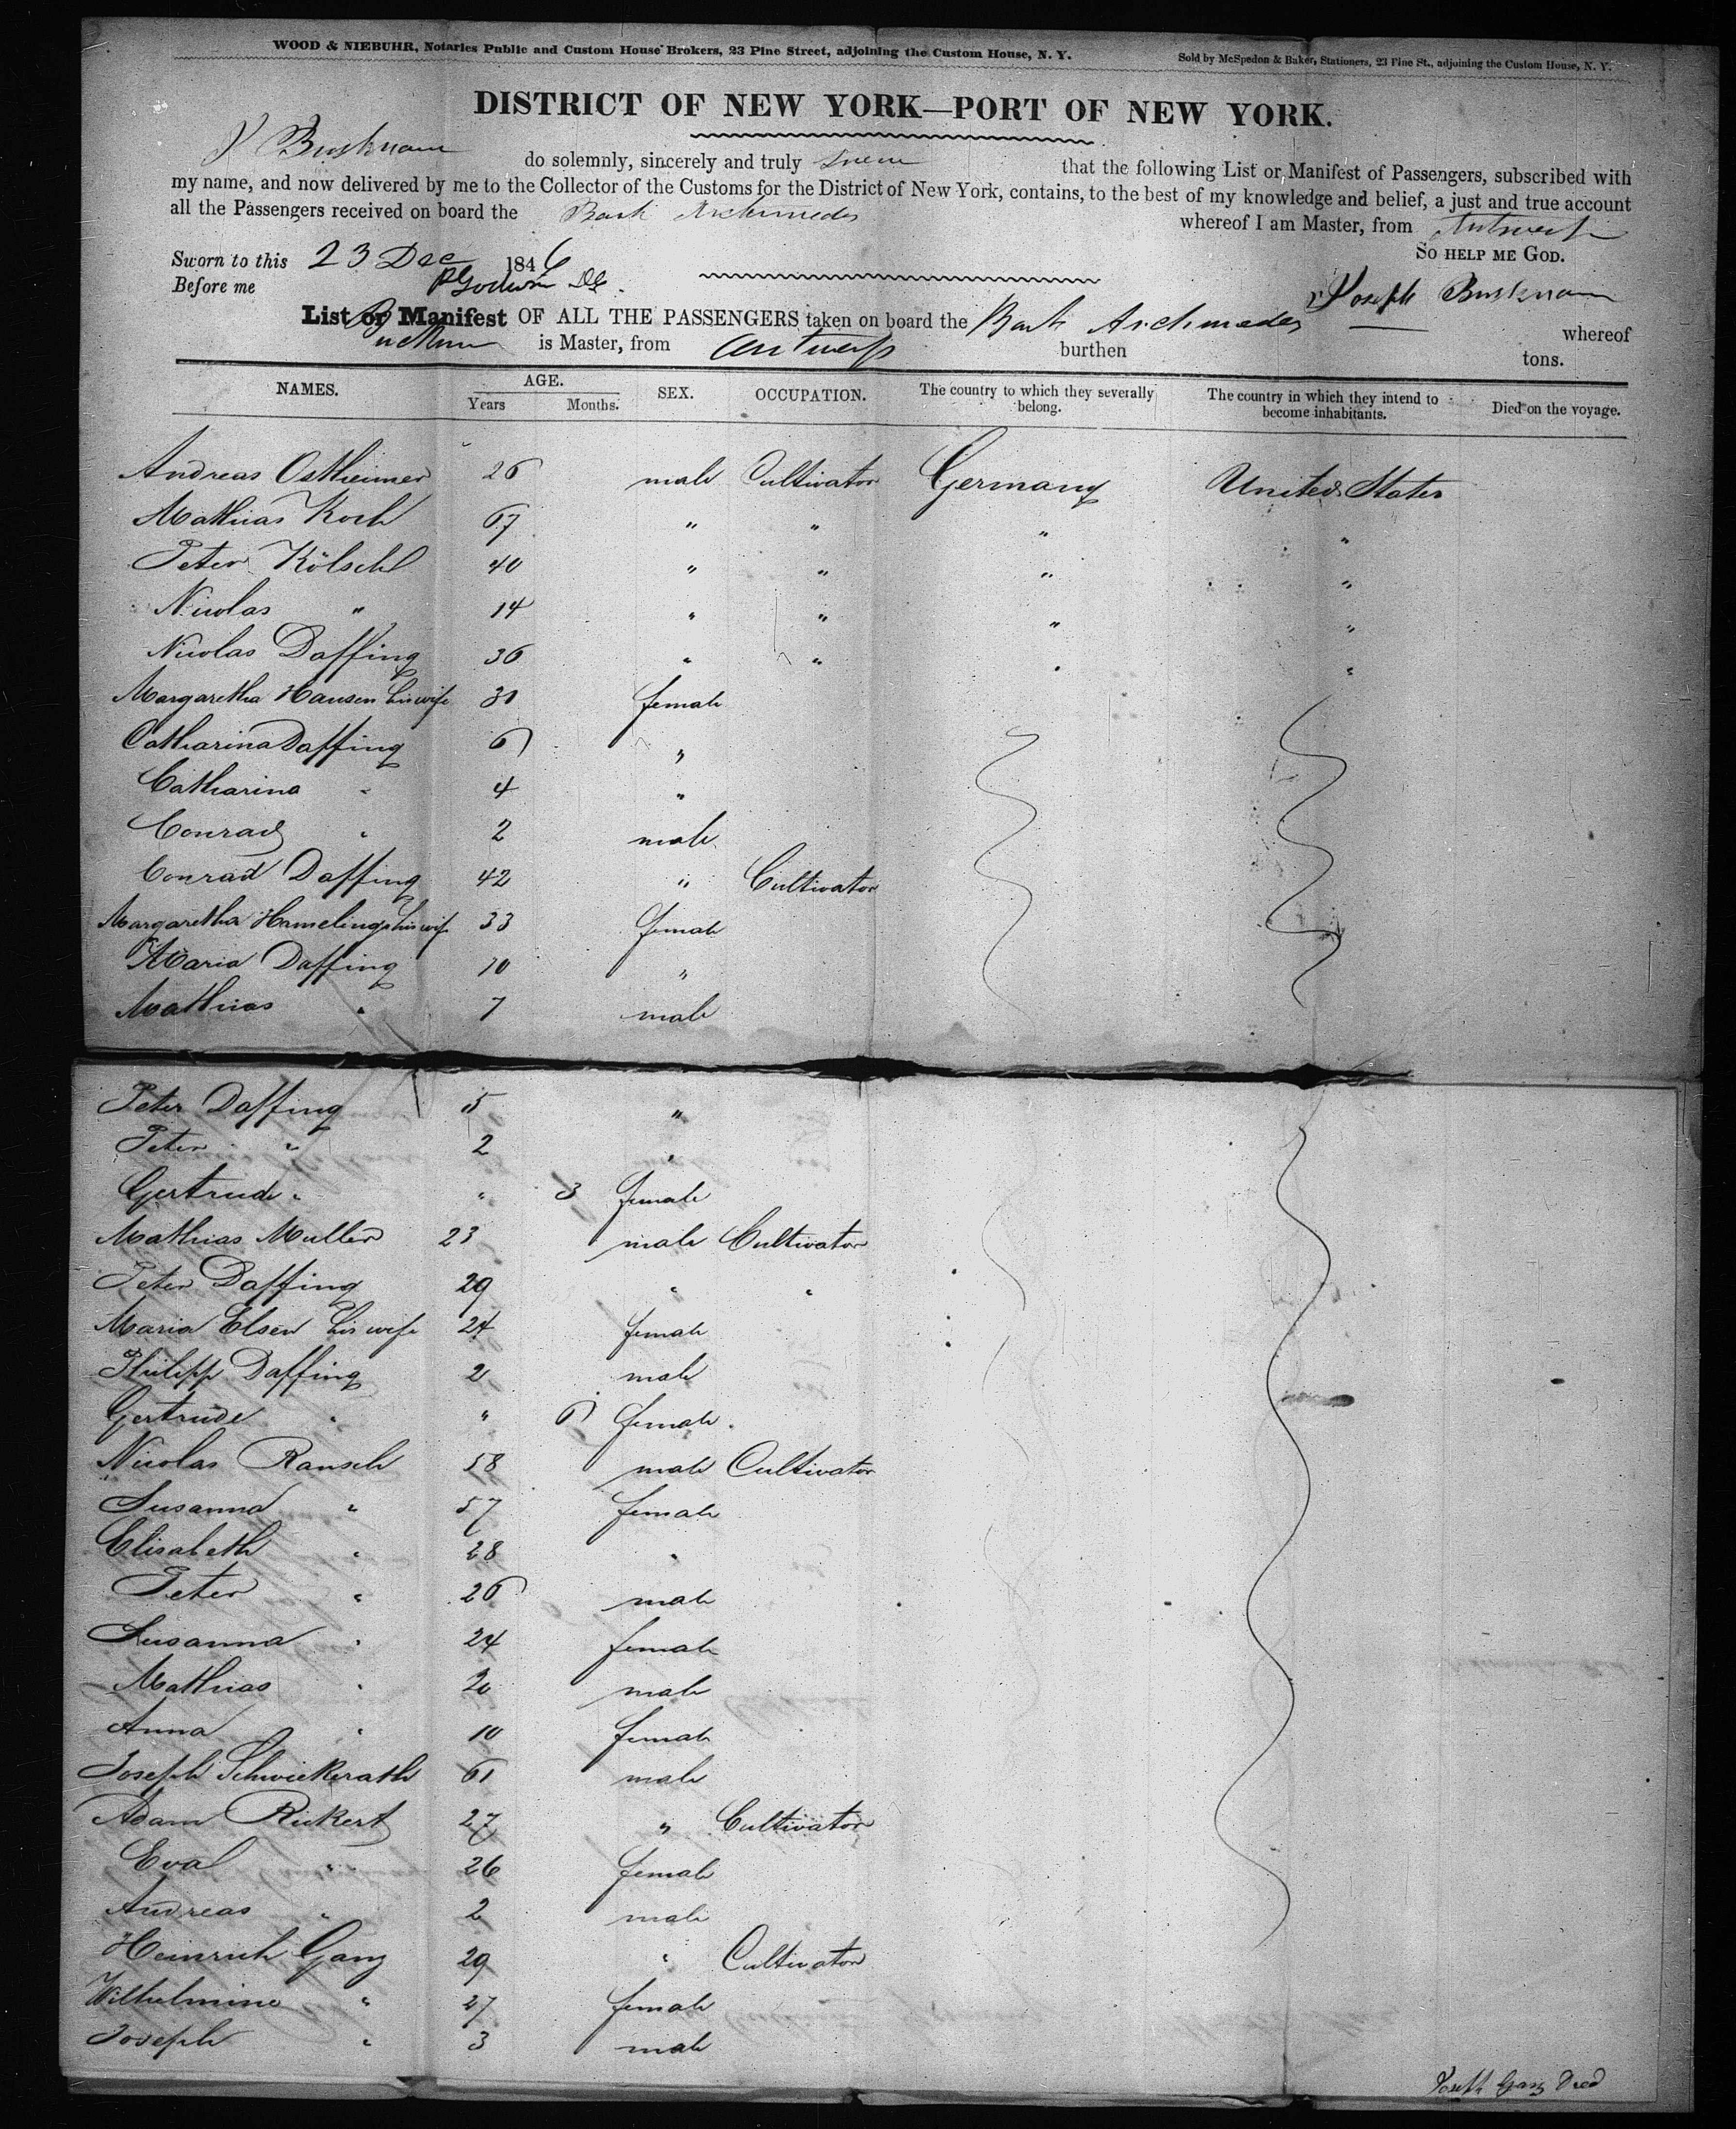 WOOD & NIEBUHR, Notaries Public and Custom House Brokers, 23 Pine Street, adjoining the Custom House, N. Y.
Sold by McSpedon & Baker, Stationers, 23 Pine St., adjoining the Custom House, N. Y.
DISTRICT OF NEW YORK—PORT OF NEW YORK.
do solemnly, sincerely and truly that the following List or Manifest of Passengers, subscribed with
my name, and now delivered by me to the Collector of the Customs for the District of New York, contains, to the best of my knowledge and belief, a just and true account
all the Passengers received on board the Bark Archimedes whereof I am Master, from Antwerp
Sworn to this 23 Dec 1846 SO HELP ME GOD.
Before me Joseph
List or Manifest OF ALL THE PASSENGERS taken on board the Bark Archimedes whereof
is Master, from Antwerp burthen tons.
NAMES. AGE. Years Months. SEX. OCCUPATION. The country to which they severally belong. The country in which they intend to become inhabitants. Died on the voyage.
Andreas Ostheimer 26 male Cultivator Germany United States
Mathias Koch 67 " " " "
Peter Kölsch 40 " " " "
Nicolas " 14 " " " "
Nicolas Daffing 36 " " " "
Margaretha Hansen his wife 30 female
Catharina Daffing 6 "
Catharina " 4 "
Conrad " 2 male
Conrad Daffing 42 " Cultivator
Margaretha Hamelings his wife 33 female
Maria Daffing 10 "
Mathias " 7 male
Peter Daffing 5 "
Peter " 2 "
Gertrude " " 3 female
Mathias Muller 23 male Cultivator
Peter Daffing 29 " "
Maria Elsen his wife 24 female
Philipp Daffing 2 male
Gertrude " " 6 female
Nicolas Rausch 58 male Cultivator
Susanna " 57 female
Elisabeth " 28 "
Peter " 26 male
Susanna " 24 female
Mathias " 20 male
Anna " 10 female
Joseph Schwickerath 61 male
Adam Rickert 27 " Cultivator
Eva " 26 female
Andreas " 2 male
Heinrich Ganz 29 " Cultivator
Wilhelmine " 27 female
Joseph " 3 male
Joseph Ganz Died